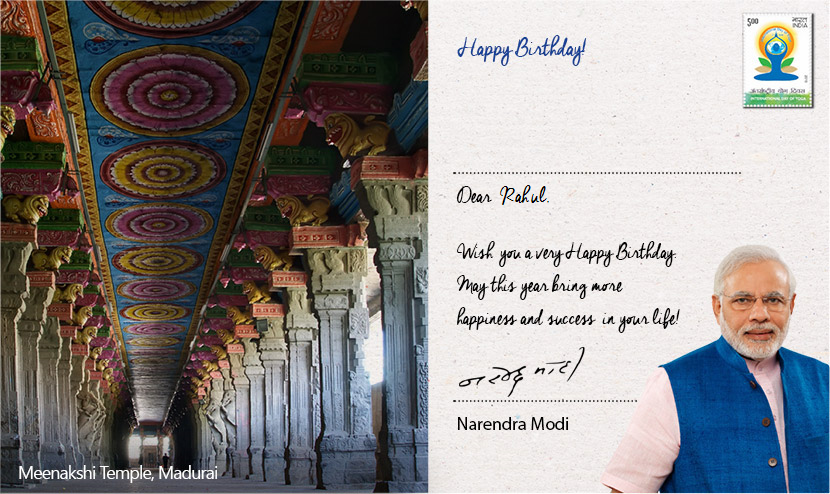 Happy Birthday!
500
भारत
INDIA
अंतर्राष्ट्रीय योग दिवस
INTERNATIONAL DAY OF YOGA
Dear Rahul,
Wish you a very Happy Birthday.
May this year bring more
happiness and success in your life!
नरेन्द्र मोदी
Narendra Modi
Meenakshi Temple, Madurai